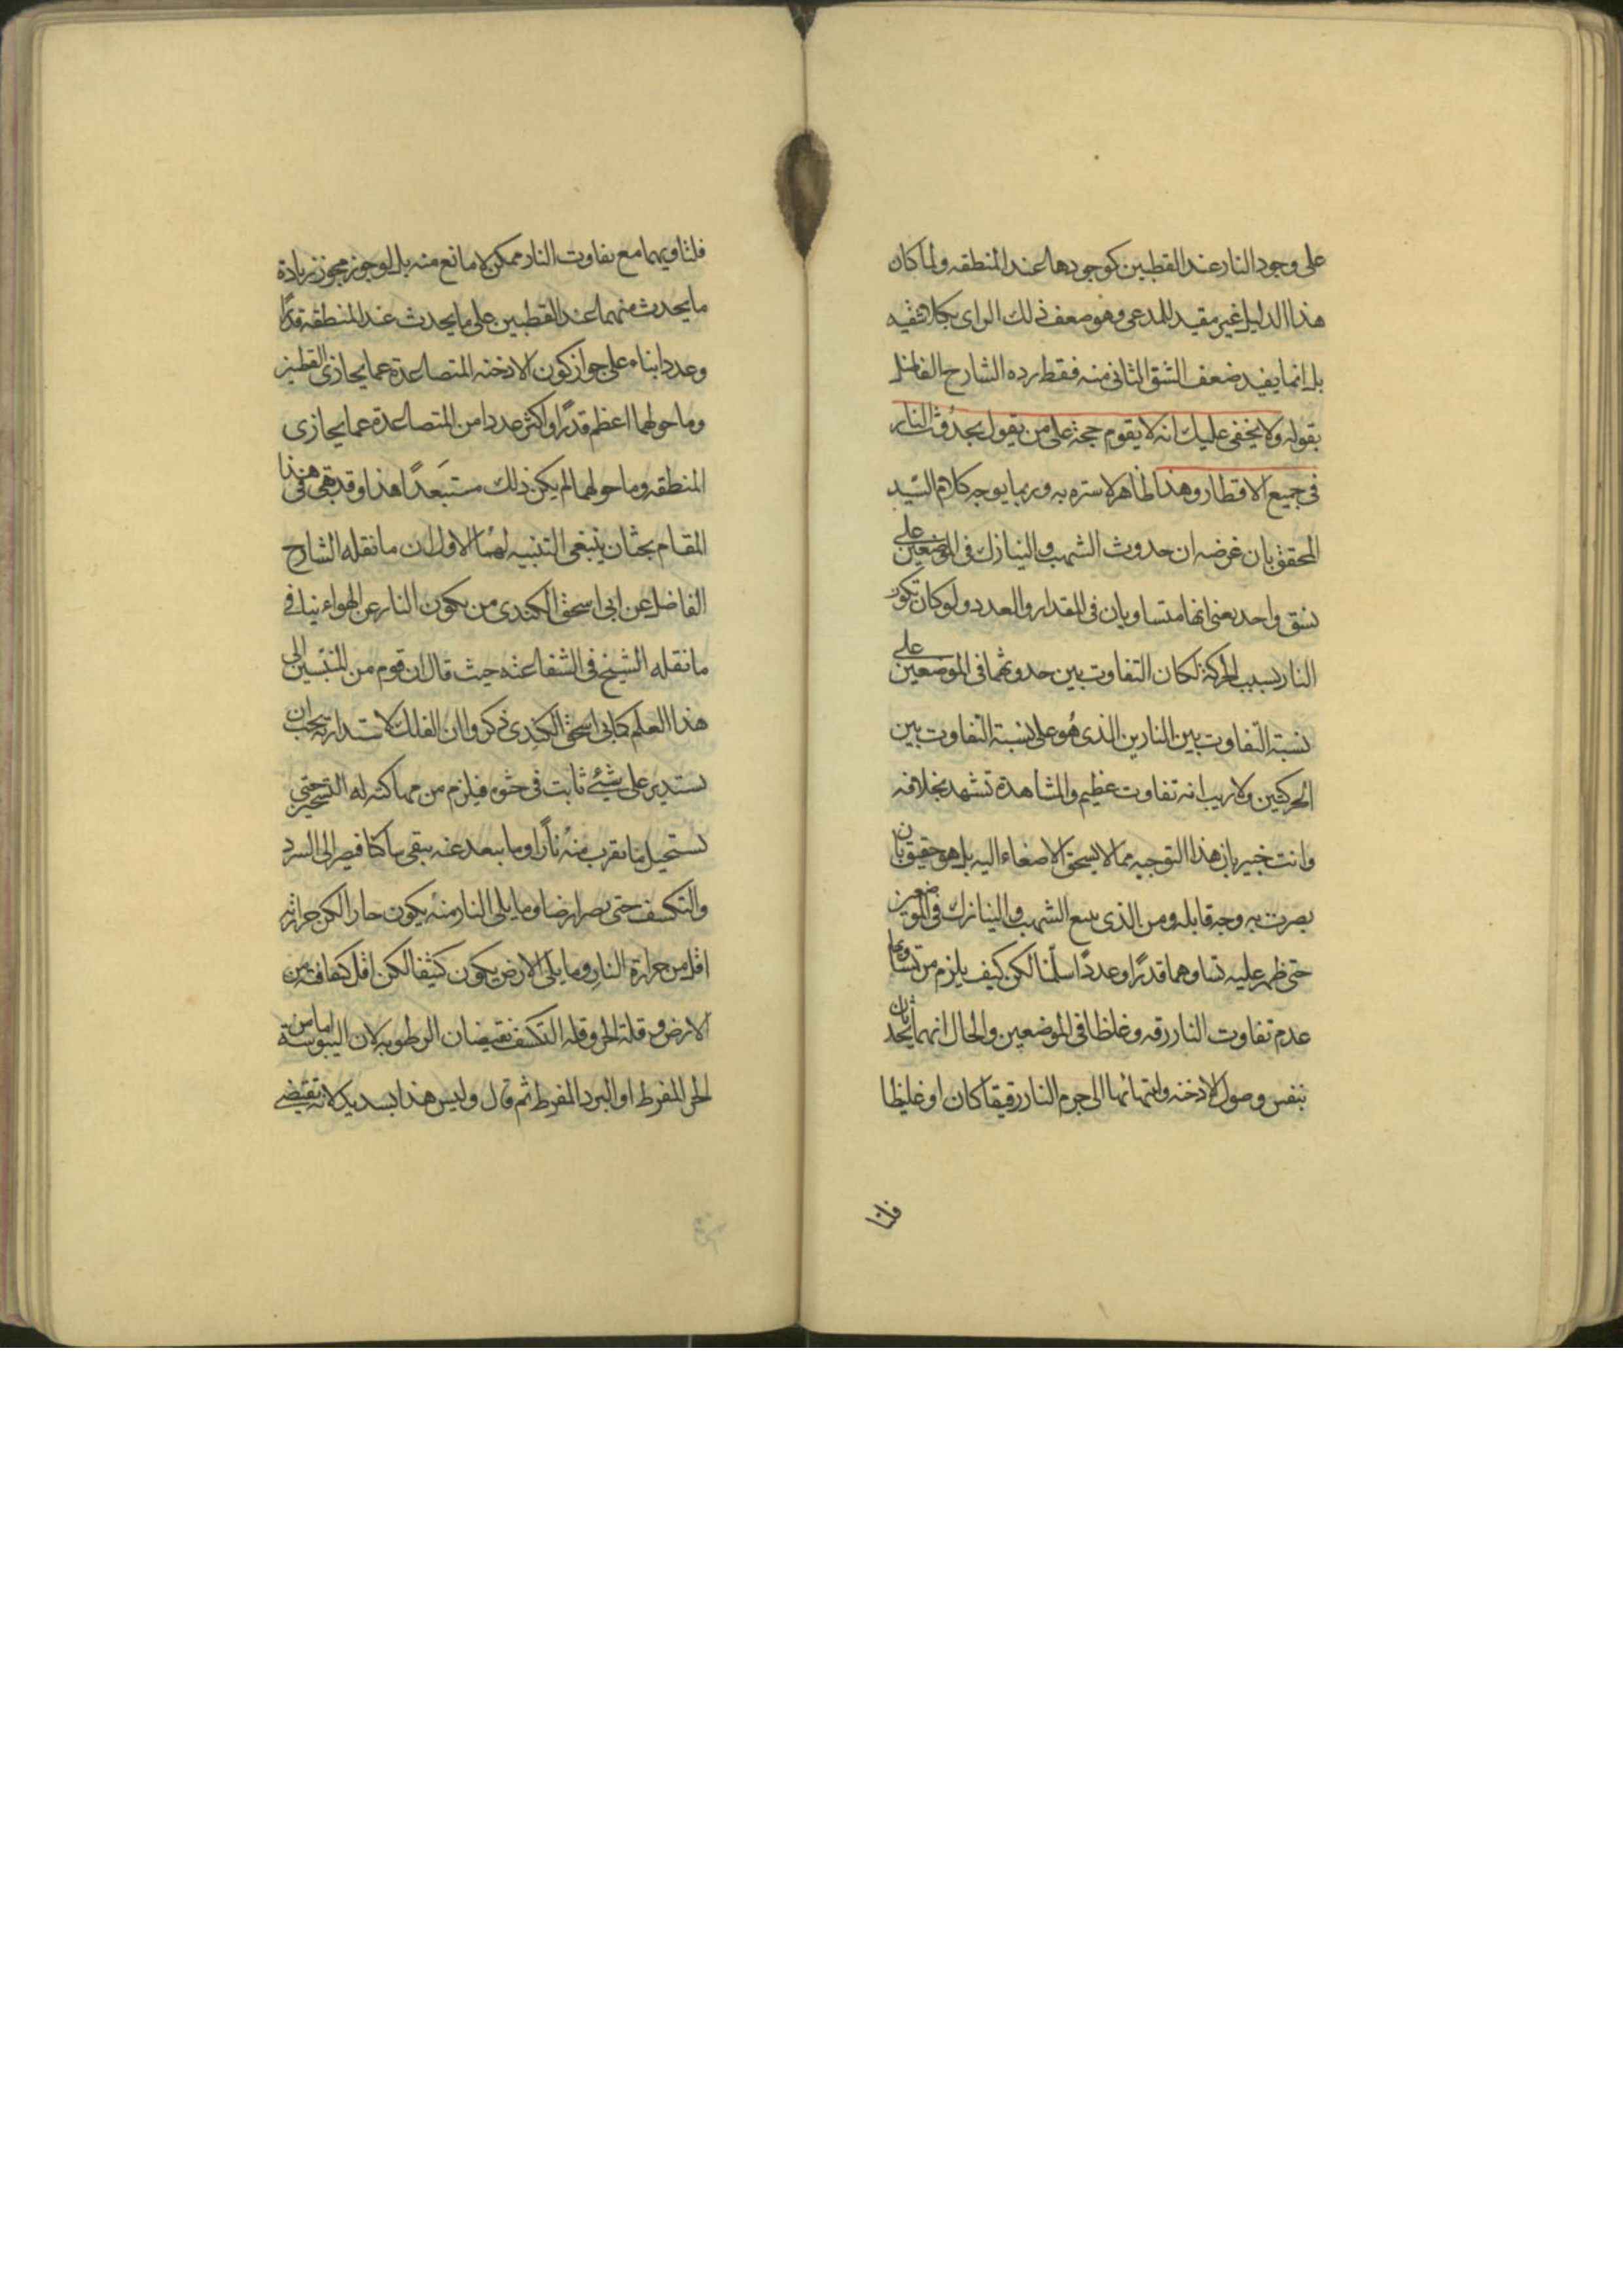 على وجود النار عند القطبين كوجودها عند المنطقه ولما كان
هذا الدليل غير مفيد للمدعى وهو ضعف ذلك الراى بكلا شقيه
بل انما يفيد ضعف الشق الثانى منه فقط رده الشارح الفاضل
بقوله ولا يخفى عليك انه لا يقوم حجة على من يقول بحدوث النار
فى جميع الاقطار وهذا ظاهر لا ستره به وربما يوجه كلام السيد
المحقق بان غرضه ان حدوث الشهب والنيازك فى الموضعين على
نسق واحد يعنى انها متساويان فى المقدار والعدد ولو كان تكون
النار بسبب الحركة لكان التفاوت بين حدوثهما فى الموضعين على
نسبة التفاوت بين النارين الذى هو على نسبة التفاوت بين
الحركتين ولا ريب انه تفاوت عظيم والمشاهدة تشهد بخلافه
وانت خبير بان هذا التوجيه مما لا يستحق الاصغاء اليه بل هو حقيق بان
يضرب به وجه قابله ومن الذى تتبع الشهب والنيازك فى الموضعين
حتى ظهر عليه تساوهما قدرًا وعددًا سلمنا لكن كيف يلزم من تساويهما
عدم تفاوت النار رقه وغلظا فى الموضعين والحال انهما يحدثان
بنفس وصول الادخنه وانتهائها الى جرم النار رقيقا كان او غليظا
فلتا
فلتاويهما مع تفاوت النار ممكن لا مانع منه بل لو جوز مجوز زيادة
ما يحدث منهما عند القطبين على ما يحدث عند المنطقه قدرًا
وعددا بناء على جواز كون الادخنه المتصاعدة عما يحاذى القطبين
وما حولهما اعظم قدرًا واكثر عددا من المتصاعدة عما يحازى
المنطقه وما حولهما لم يكن ذلك مستبعدًا هذا وقد بقى فى هذا
المقام بحثان ينبغى التنبيه لهما الاول ان ما نقله الشارح
الفاضل عن ابى اسحق الكندى من تكون النار عن الهواء ينافى
ما نقله الشيخ فى الشفا عنه حيث قال ان قوم من المنتسبين الى
هذا العلم كابى اسحق الكندى ذكروا ان الفلك لاستدارته يجب ان
يستدير على شيئ ثابت فى حشوه فيلزم من محاكته له التسخير حتى
يستحيل ما يقرب منه نارًا وما يبعد عنه يبقى ساكنا فيصر الى البرد
والتكسف حتى يصر ارضا وما يلى النار منه يكون حارا لكن حرارته
اقل من حرارة النار وما يلى الارض يكون كثيفا لكن اقل كثافه من
الارض وقلة الحر وقله التكسف تقتضيان الرطوبه لان اليبوسة اما من
الحر المفرط او البرد المفرط ثم قال وليس هذا بسديد لانه تقتضى